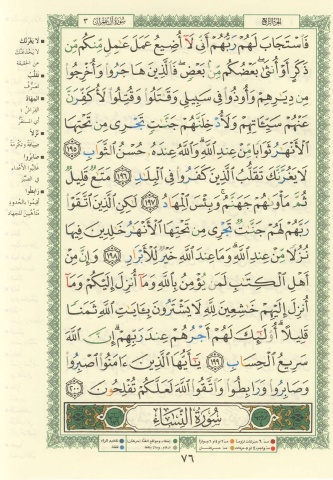 الجزء الرابع
سورة آل عمران ٣
فَاسْتَجَابَ لَهُمْ رَبُّهُمْ أَنِّي لَا أُضِيعُ عَمَلَ عَامِلٍ مِنْكُمْ مِنْ
ذَكَرٍ أَوْ أُنْثَى بَعْضُكُمْ مِنْ بَعْضٍ فَالَّذِينَ هَاجَرُوا وَأُخْرِجُوا
مِنْ دِيَارِهِمْ وَأُوذُوا فِي سَبِيلِي وَقَاتَلُوا وَقُتِلُوا لَأُكَفِّرَنَّ
عَنْهُمْ سَيِّئَاتِهِمْ وَلَأُدْخِلَنَّهُمْ جَنَّاتٍ تَجْرِي مِنْ تَحْتِهَا
الْأَنْهَارُ ثَوَابًا مِنْ عِنْدِ اللَّهِ وَاللَّهُ عِنْدَهُ حُسْنُ الثَّوَابِ ١٩٥
لَا يَغُرَّنَّكَ تَقَلُّبُ الَّذِينَ كَفَرُوا فِي الْبِلَادِ ١٩٦ مَتَاعٌ قَلِيلٌ
ثُمَّ مَأْوَاهُمْ جَهَنَّمُ وَبِئْسَ الْمِهَادُ ١٩٧ لَكِنِ الَّذِينَ اتَّقَوْا
رَبَّهُمْ لَهُمْ جَنَّاتٌ تَجْرِي مِنْ تَحْتِهَا الْأَنْهَارُ خَالِدِينَ فِيهَا
نُزُلًا مِنْ عِنْدِ اللَّهِ وَمَا عِنْدَ اللَّهِ خَيْرٌ لِلْأَبْرَارِ ١٩٨ وَإِنَّ مِنْ
أَهْلِ الْكِتَابِ لَمَنْ يُؤْمِنُ بِاللَّهِ وَمَا أُنْزِلَ إِلَيْكُمْ وَمَا
أُنْزِلَ إِلَيْهِمْ خَاشِعِينَ لِلَّهِ لَا يَشْتَرُونَ بِآيَاتِ اللَّهِ ثَمَنًا
قَلِيلًا أُولَئِكَ لَهُمْ أَجْرُهُمْ عِنْدَ رَبِّهِمْ إِنَّ اللَّهَ
سَرِيعُ الْحِسَابِ ١٩٩ يَا أَيُّهَا الَّذِينَ آمَنُوا اصْبِرُوا
وَصَابِرُوا وَرَابِطُوا وَاتَّقُوا اللَّهَ لَعَلَّكُمْ تُفْلِحُونَ ٢٠٠
سُورَةُ النِّسَاءِ
لا يغرّنّك
لا يخدعنّك
عن الحقيقة
تقلّب
تصرّف
المهاد
الفراش
نزلاً
ضيافة وتكرمة
صابروا
رابطوا
أقيموا بالحدود
متأهّبين للجهاد
٧٦